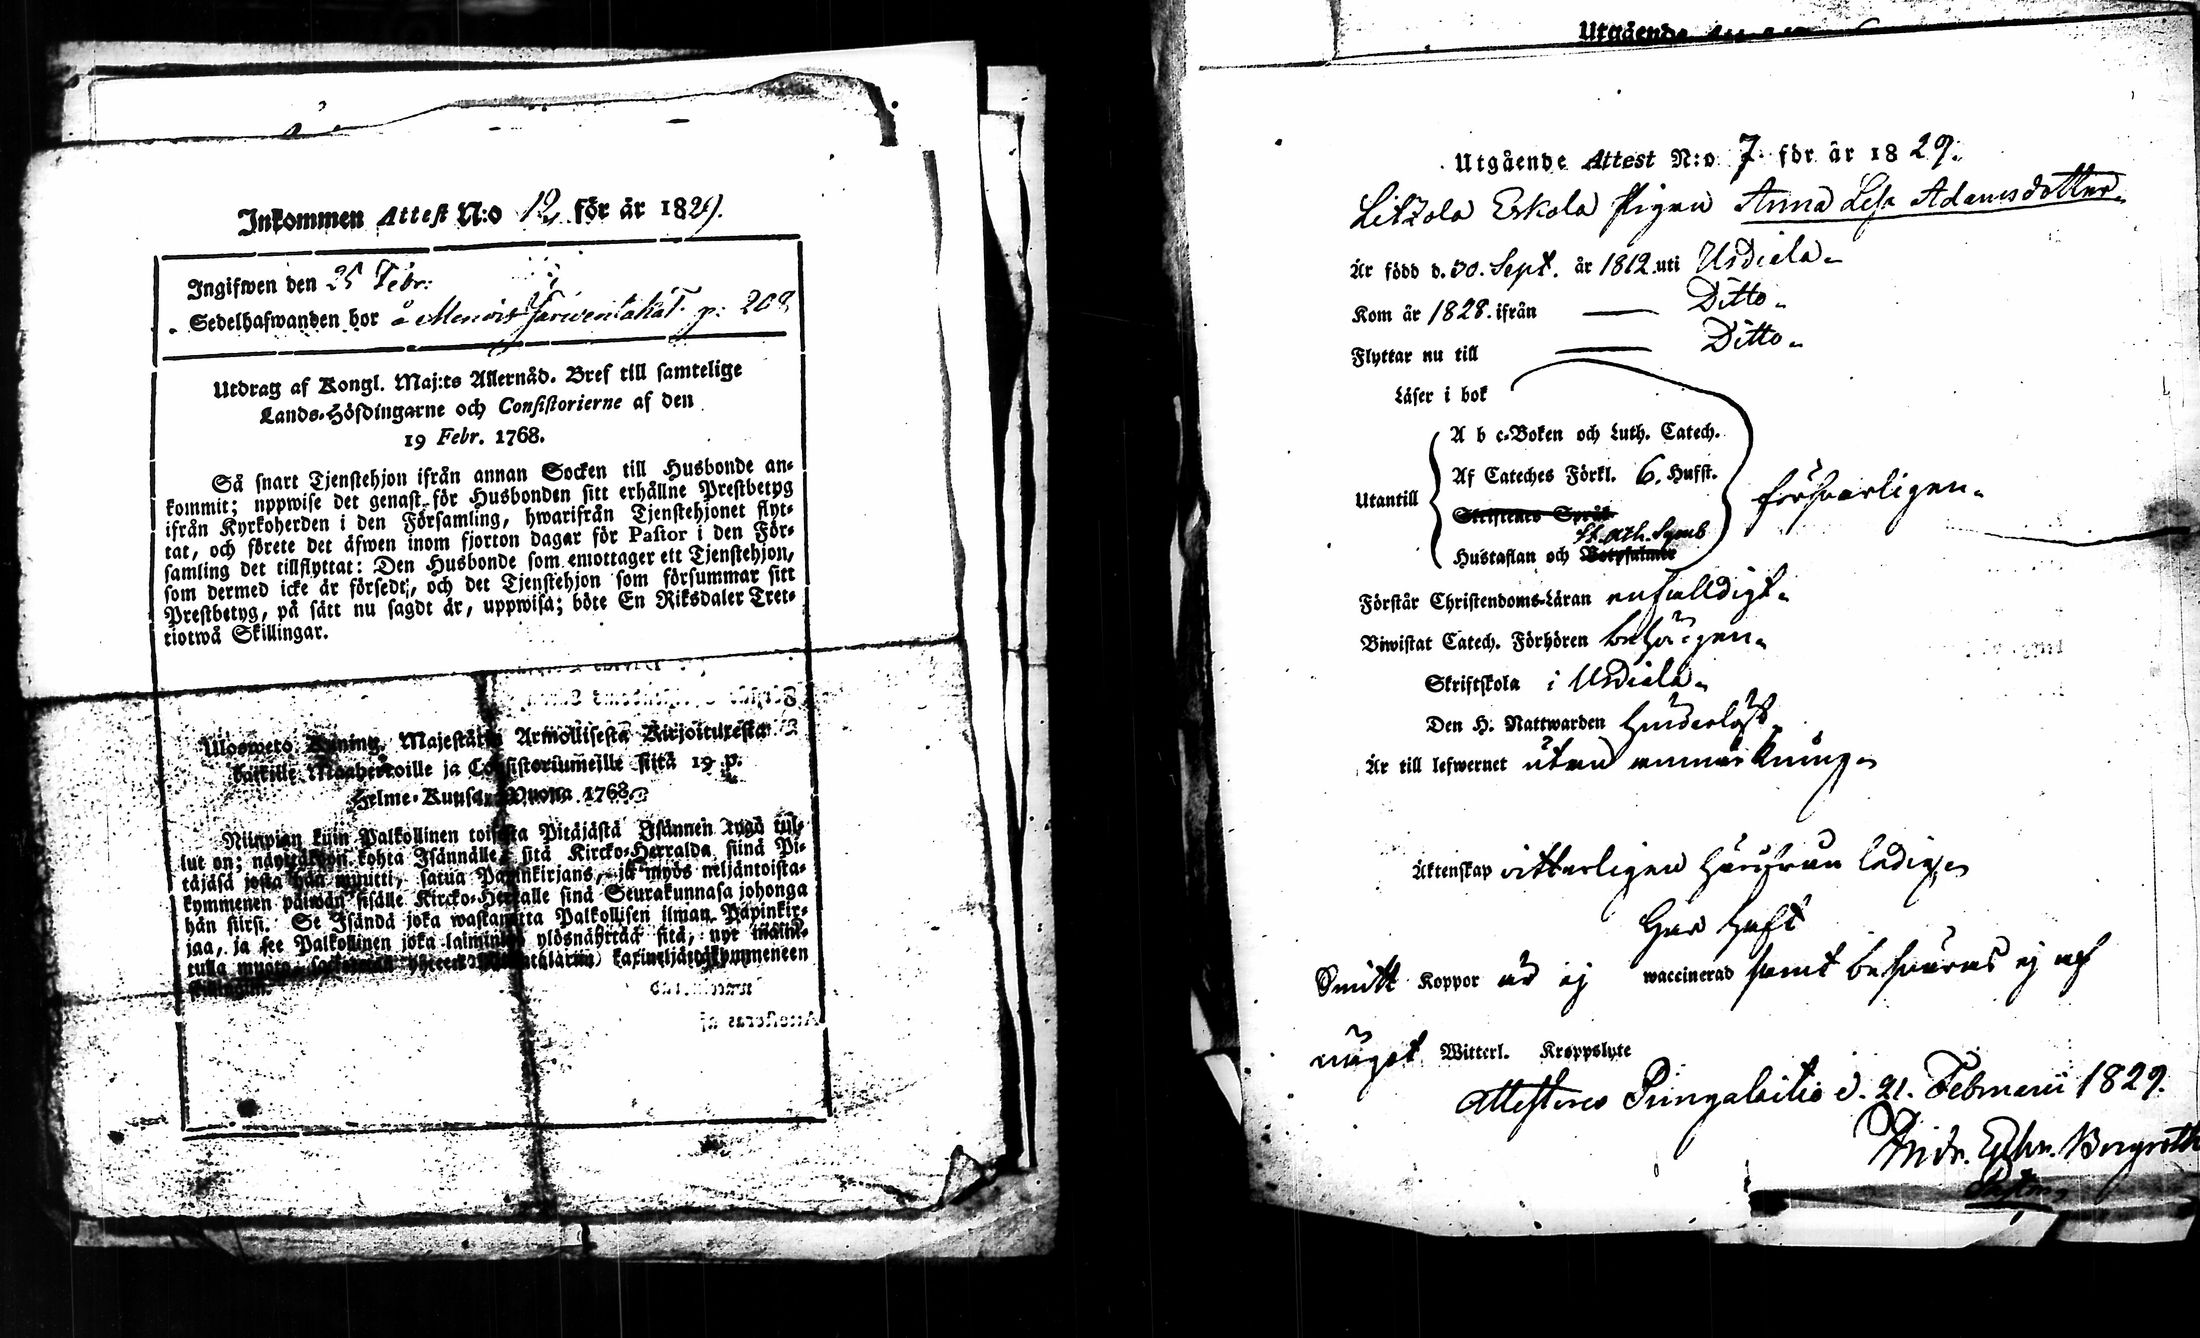 Inkommen Attest N:o 12 för år 1829.
Ingifwen den 25 Febr:
Sedelhafwanden bor å p. 208
Utdrag af Kongl. Maj:ts Allernåd. Bref till samtelige
Lands-Höfdingarne och Consistorierne af den
19 Febr. 1768.
Så snart Tjenstehjon ifrån annan Socken till Husbonde an-
kommit; uppwise det genast för Husbonden sitt erhållne Prestbetyg
ifrån Kyrkoherden i den Församling, hwarifrån Tjenstehjonet flyt-
tat, och förete det äfwen inom fjorton dagar för Pastor i den För-
samling det tillflyttat: Den Husbonde som emottager ett Tjenstehjon,
som dermed icke är försedt, och det Tjenstehjon som försummar sitt
Prestbetyg, på sätt nu sagdt är, uppwisa; böte En Riksdaler Tret-
tiotwå Skillingar.
Ulosweto Kuning. Majestätin Armollisesta Kirjoituxesta
kaikille Maaherroille ja Consistoriumeille siitä 19 p.
Helme-Kuusa Wuonna 1768.
Niinpian kuin Palkollinen toisesta Pitäjästä Isännen tygö tul-
lut on; näyttäköön kohta Isännälle sitä Kircko-Herralda siinä Pi-
täjäsä josta hän muutti, satua Papinkirjans, ja myös neljäntoista-
kymmenen päiwän sisälle Kircko-Herralle sinä Seurakunnasa johonga
hän siirsi. Se Isändä joka wastanotta Palkollisen ilman Papinkir-
jaa, ja see Palkollinen joka laiminlyö ylösnäyttää sitä, nyt mainit-
tulla muota, kaxineljättäkymmeneen
Killingiin.
Utgående
Utgående Attest N:o 7. för år 1829.
Litzola Eskola Pigan Anna Lisa Adamsdotter
Är född d. 30. Sept. år 1812 uti Usdiala
Kom år 1828. ifrån — Ditto
Flyttar nu till — Ditto
Läser i bok
A b c-Boken och Luth. Catech.
Af Cateches Förkl. 6. Hufst.
Utantill
försvarligen
Skriftenes Språk
St. Ath. Symb
Hustaflan och Botpsalmer
Förstår Christendoms-Läran enfalldigt
Biwistat Catech. Förhören behörigen
Skriftskola i Usdiala
Den H. Nattwarden hinderlöst
Är till lefwernet utan anmärkning
Äktenskap vitterligen härifrån ledig
har haft
Smitt Koppor är ej waccinerad samt besværas ej af
något Witterl. Kroppslyte
Attesteras Pungalaitio d. 21. Februarii 1829.
Andr. Bergroth
Pastor